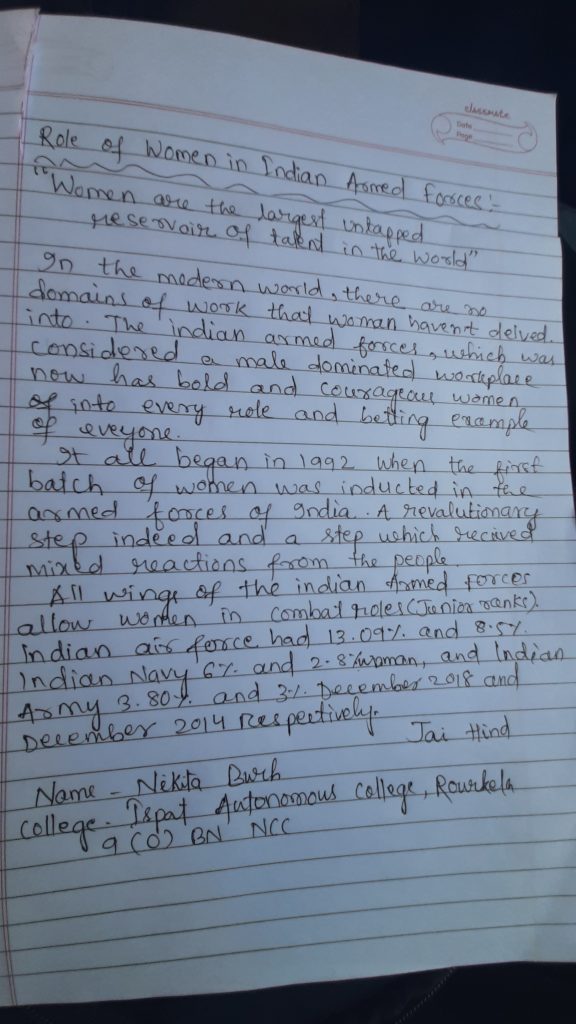 classmate
Date
Page
Role of Women in Indian Armed Forces:-
"Women are the largest untapped
reservoir of talent in the world"
In the modern world, there are no
domains of work that woman havent delved.
into. The indian armed forces, which was
considered a male dominated workplace
now has bold and courageous women
of into every role and betting example
of eveyone.
It all began in 1992 when the first
batch of women was inducted in the
armed forces of India. A revalutionary
step indeed and a step which recived
mixed reactions from the people.
All wings of the indian Armed Forces
allow women in combat roles (Junior ranks).
Indian air force had 13.09% and 8.5%.
Indian Navy 6% and 2.8% woman, and Indian
Army 3.80% and 3%. December 2018 and
December 2014 Respectively.
Jai Hind
Name - Nikita Burh
college - Ispat Autonomous college, Rourkela
9 (O) BN NCC